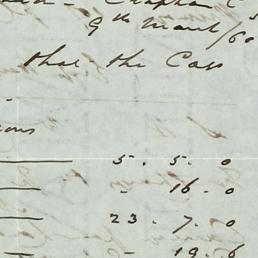 Clapham C
9th March /60
that the Cap
ions
5 . 5 . 0
- 16 . 0
23 . 7 . 0
- 19 . 6